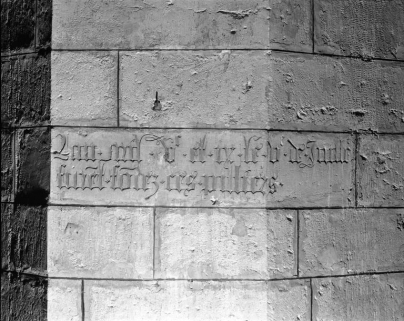 Lan mil vᶜ et ix le vᵉ de Juille
furēt fōdez ces pilliers